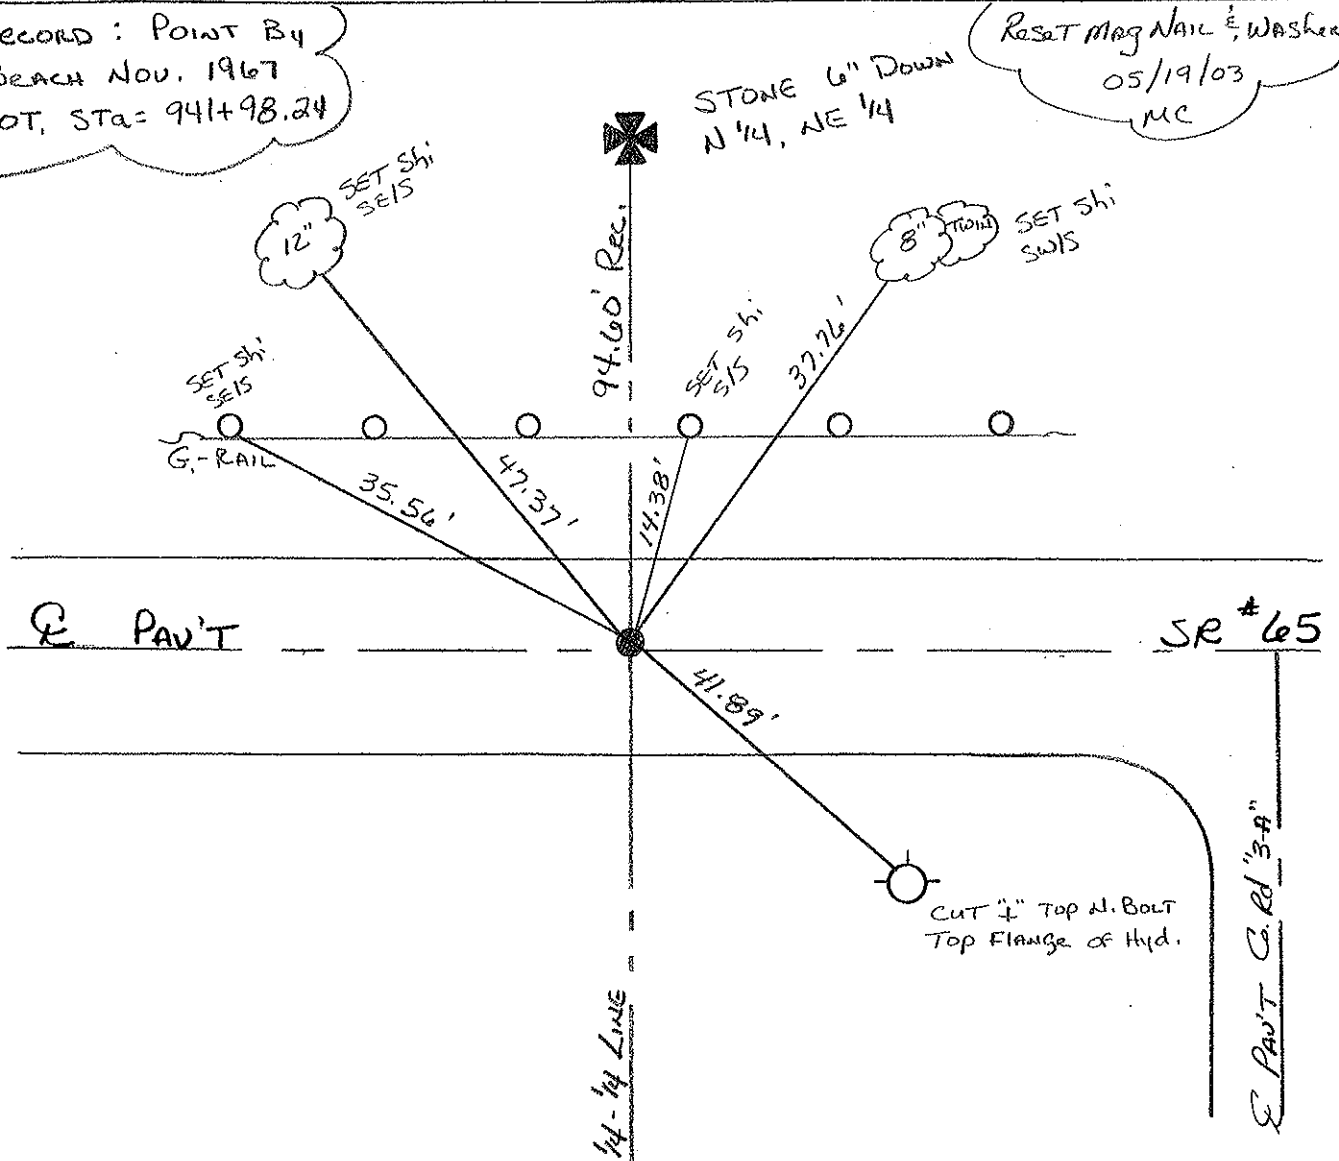 ECORD : POINT BY
BEACH NOV. 1967
OT, STa= 941+98.24
STONE 6" DOWN
N 1/4, NE 1/4
ReseT Mag NAIL & WASHer
05/19/03
MC
SET Shi
SE/S
12"
8" TWIN
SET Shi
SW/S
94.60' Rec.
SET Shi
SE/S
SET Shi
S/S
37.76'
G.-RAIL
35.56'
47.37'
14.38'
℄ PAV'T
SR #65
41.89'
CUT "+" TOP N. BOLT
TOP FLANGe OF Hyd.
1/4-1/4 LINE
℄ PAV'T Co. Rd "3-A"